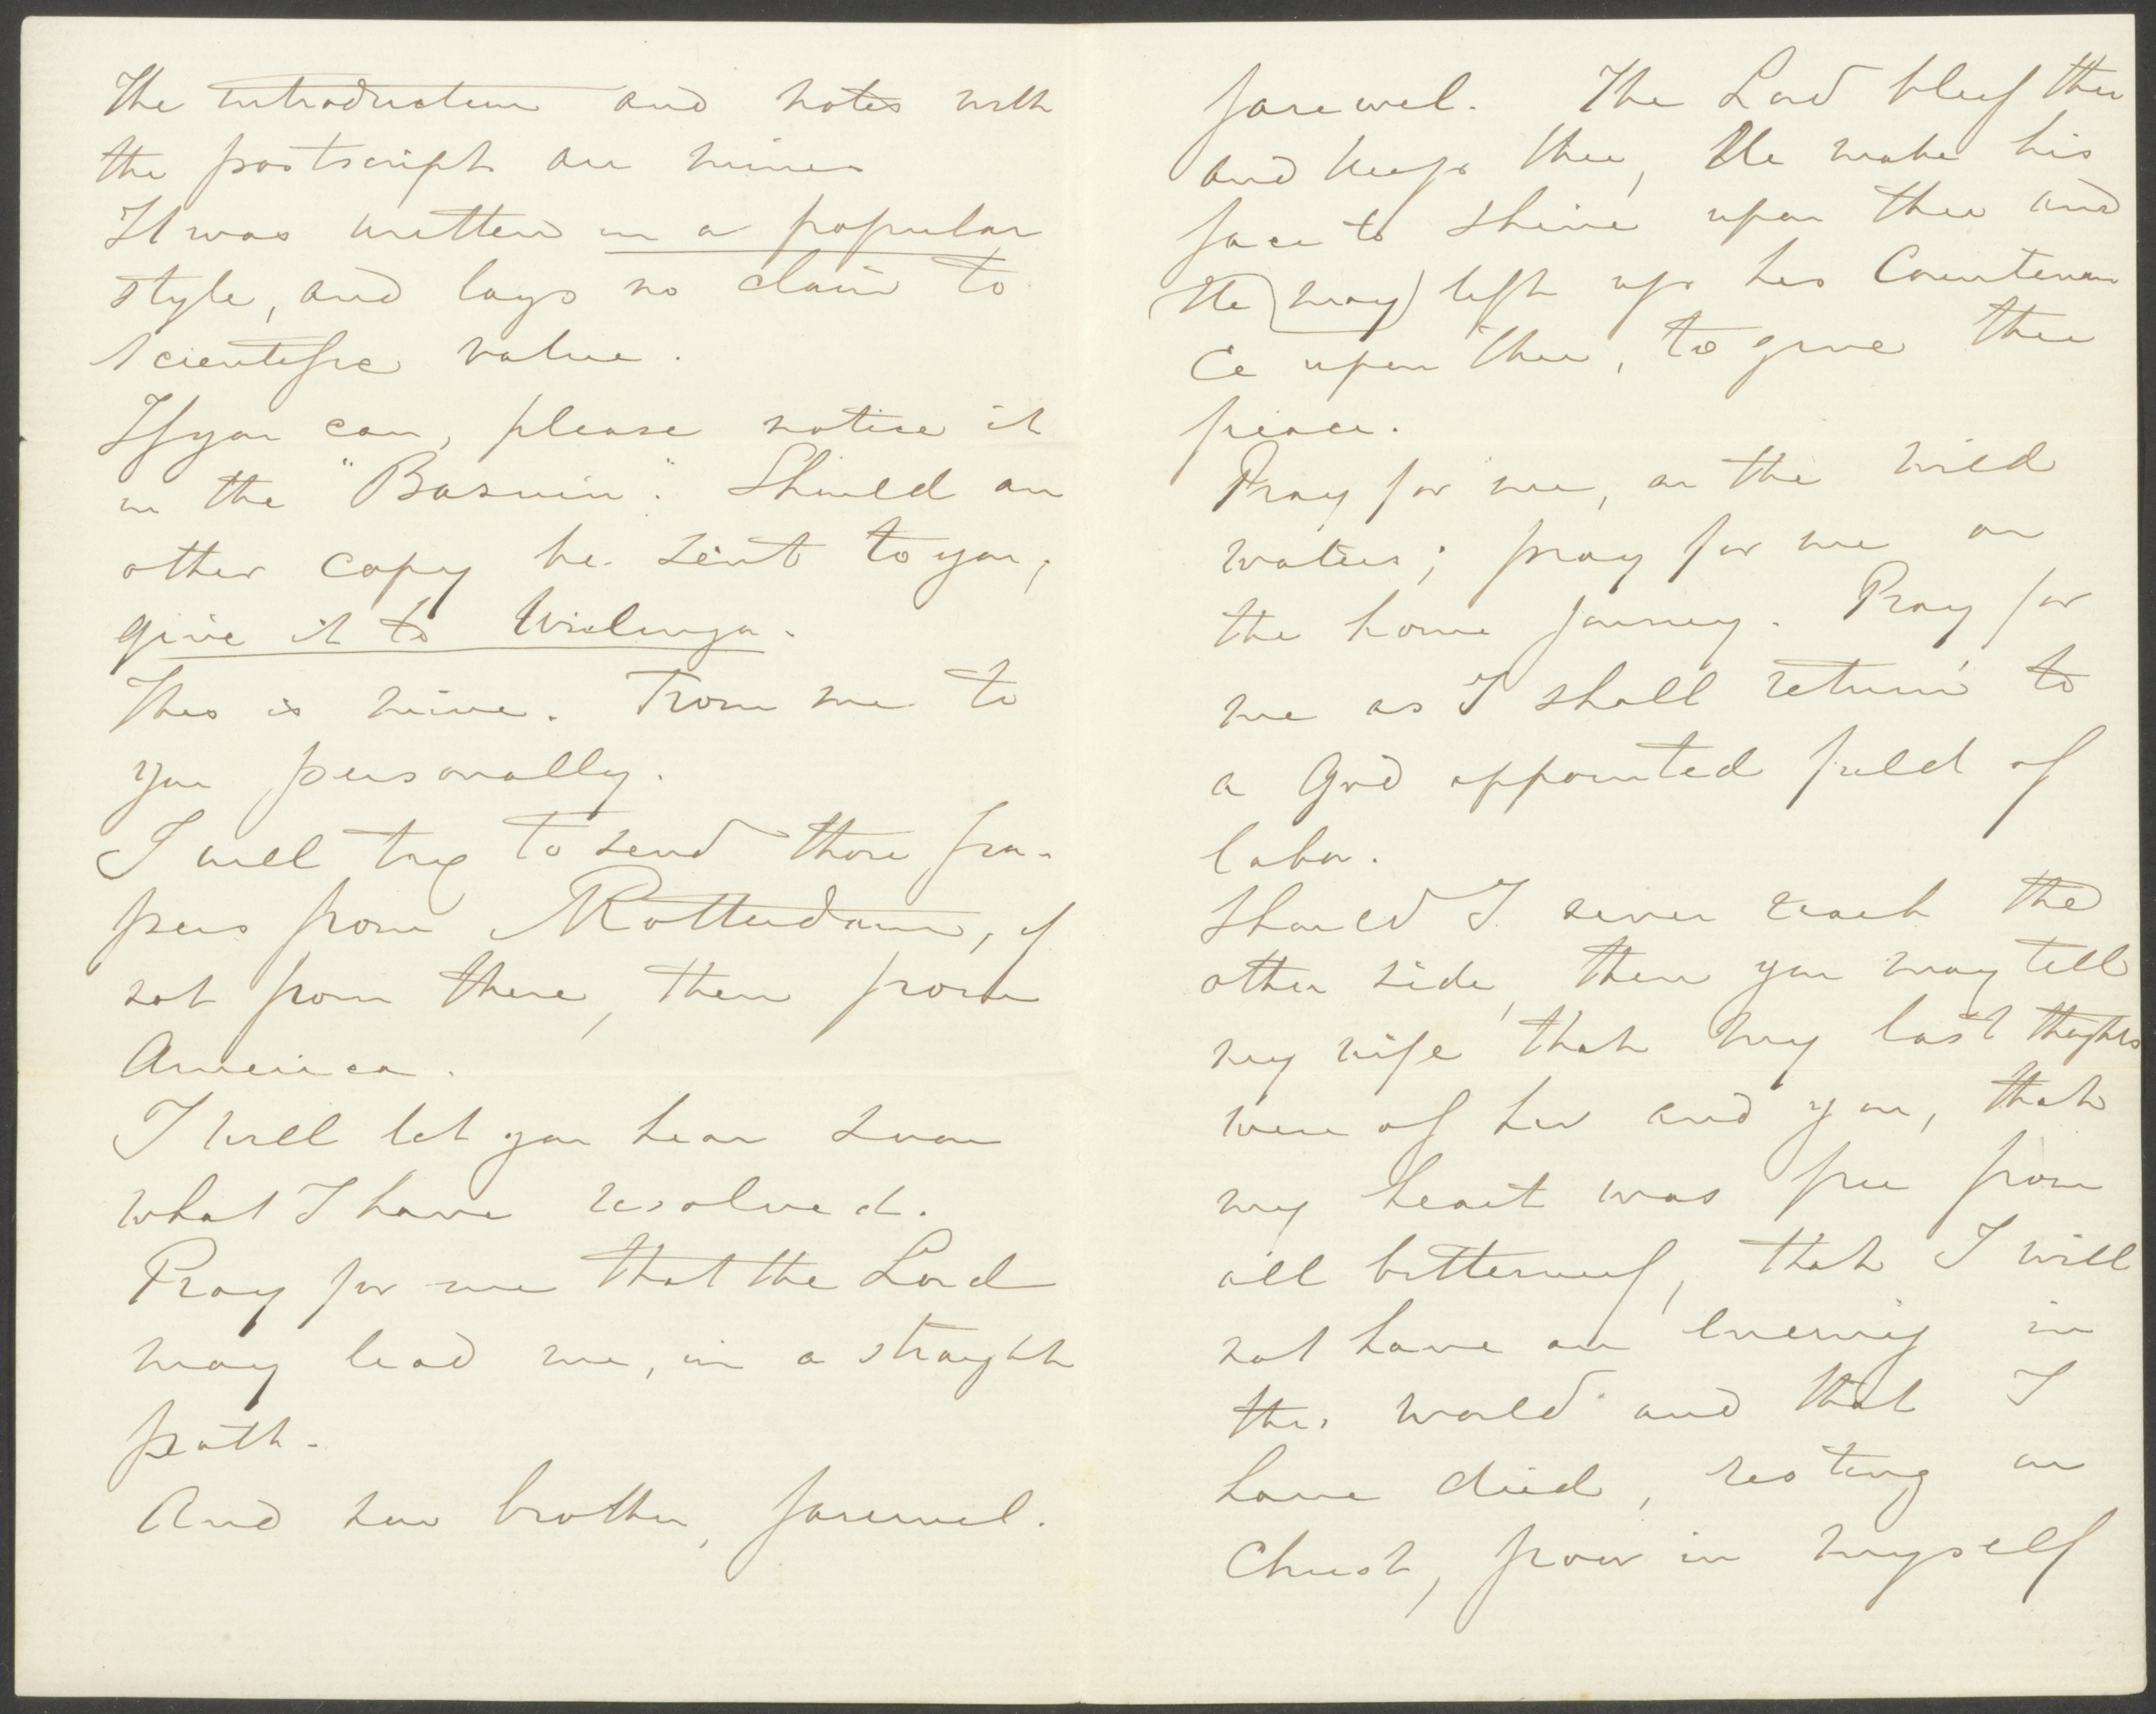 The introduction and notes with
the postscript are mine
It was written in a popular
style, and lays no claim to
scientific value.
If you can, please notice it
in the "Bazuin". Should an
other copy be sent to you,
give it to Wielenga.
This is mine. From me to
you personally.
I will try to send those pa-
pers from Rotterdam, if
not from there, then from
America.
I will let you hear soon
what I have resolved.
Pray for me that the Lord
may lead me, in a straight
path.
And now brother, farewel.
farewel. The Lord bless thee
and keep thee, He make his
face to shine upon thee and
He (may) lift up his Countenan
ce upon thee, to give thee
peace.
Pray for me, on the wild
waters; pray for me on
the home journey. Pray for
me as I shall return, to
a God appointed field of
labor.
Should I never reach the
other side, then you may tell
my wife that my last thoughts
were of her and you, that
my heart was free from
all bitterness, that I will
not have an enemy in
this world and that I
have died, resting on
Christ, poor in myself